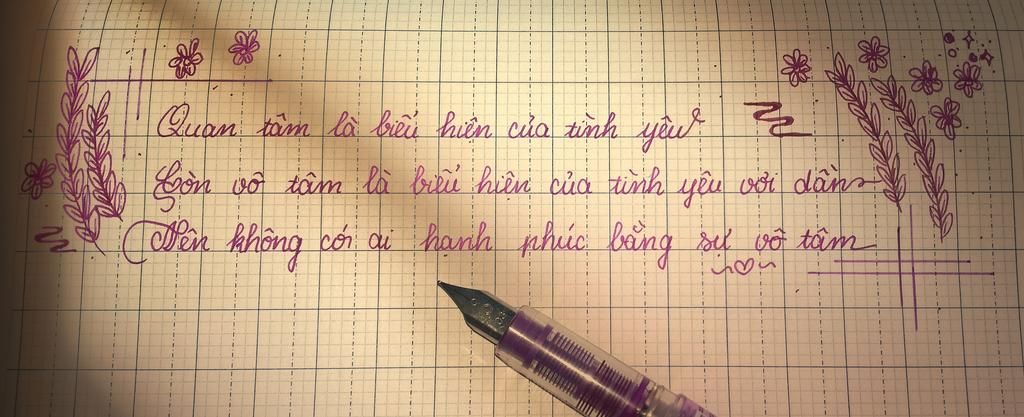 Quan tâm là biểu hiện của tình yêu
Còn vô tâm là biểu hiện của tình yêu với dần
Nên không có ai hạnh phúc bằng sự vô tâm